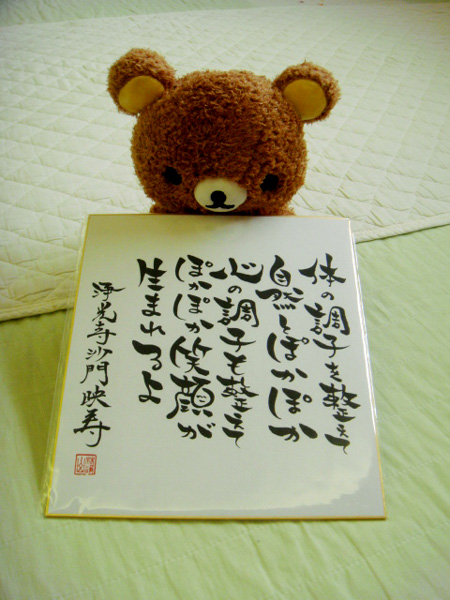 体の調子を整えて
自然とぽかぽか
心の調子も整えて
ぽかぽか笑顔が
生まれるよ
浄光寺沙門映寿